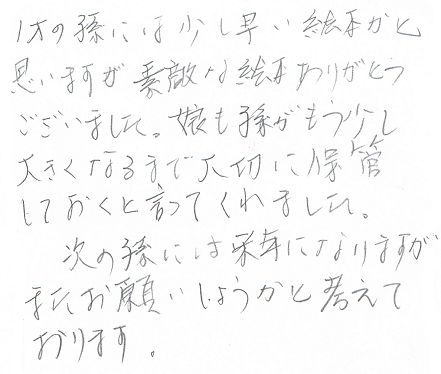 1才の孫には少し早い絵本かと
思いますが素敵な絵本ありがとう
ございました。娘も孫がもう少し
大きくなるまで大切に保管
しておくと言ってくれました。
次の孫には来年になりますが
またお願いしようかと考えて
おります。